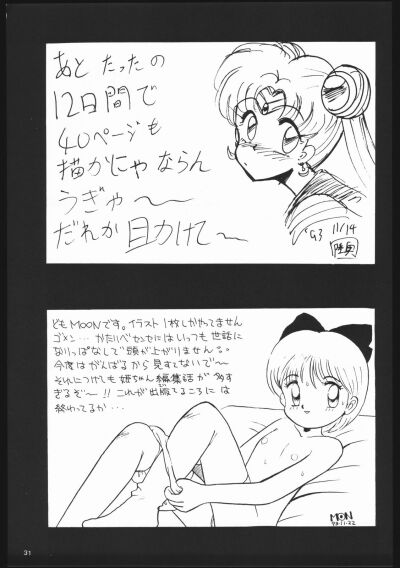 あと たったの
12日間で
40ページも
描かにゃ ならん
うぎゃ〜〜
だれか 助けて〜
'93 11/14
ども MOONです。イラスト1枚しかやってません
ゴメン… かたりべセンセにはいつも世話に
なりっぱなしで頭が上がりませんる。
今度はがんばるから見すてないで〜
それにつけても 姫ちゃん 編集話が多す
ぎるぞ〜!! これが出版てるころには
終わってるか…
MOON
93.11.22
31